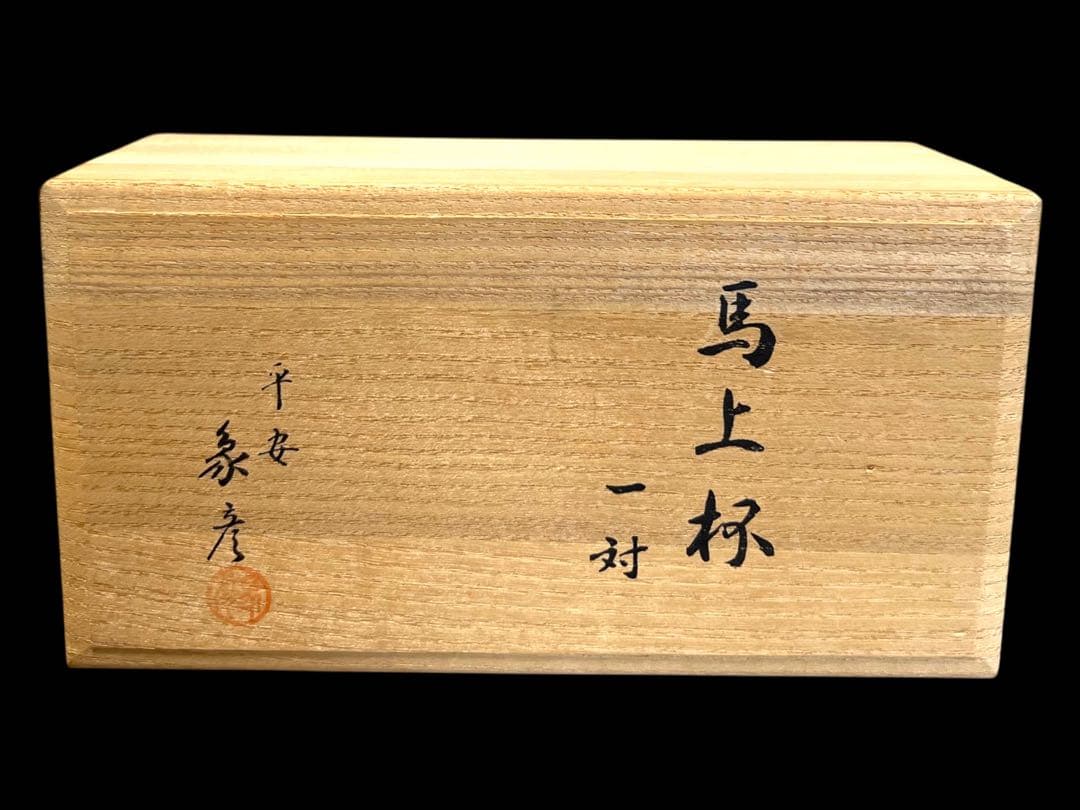 馬上杯
一対
平安
象彦